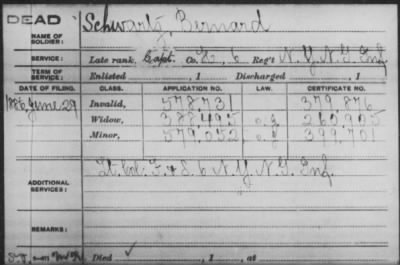 DEAD
NAME OF SOLDIER: Schwartz, Bernard
SERVICE: Late rank, Capt. Co. E, 6 Reg't N.Y.N.G. Inf
TERM OF SERVICE: Enlisted , 1 Discharged , 1
DATE OF FILING. CLASS. APPLICATION NO. LAW. CERTIFICATE NO.
1886, June 29 Invalid, 578,731 379,876
Widow, 388,495 o.g. 260,905
Minor, 579,052 o.g. 399,701
ADDITIONAL SERVICES: Lt. Col. F & S. 6 N.Y.N.G. Inf.
REMARKS:
Died , 1 , at